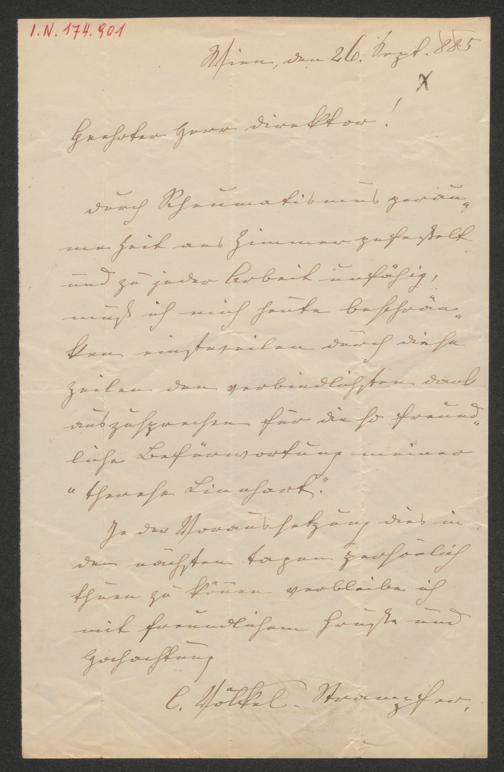 I.N. 174.901
Wien, den 26. Sept. 885
x
Geehrter Herr Direktor!
Durch Rheumatismus geräu„
me Zeit ans Zimmer gefesselt
und zu jeder Arbeit unfähig,
muß ich mich heute beschrän„
ken einstweilen durch diese
Zeilen den verbindlichsten Dank
auszusprechen für die so freund„
liche Befürwortung meiner
"Therese Linhart".
In der Voraussetzung dies in
den nächsten Tagen persönlich
thuen zu können verbleibe ich
mit freundlichem Gruße und
Hochachtung
C. Völkel-Strampfer.